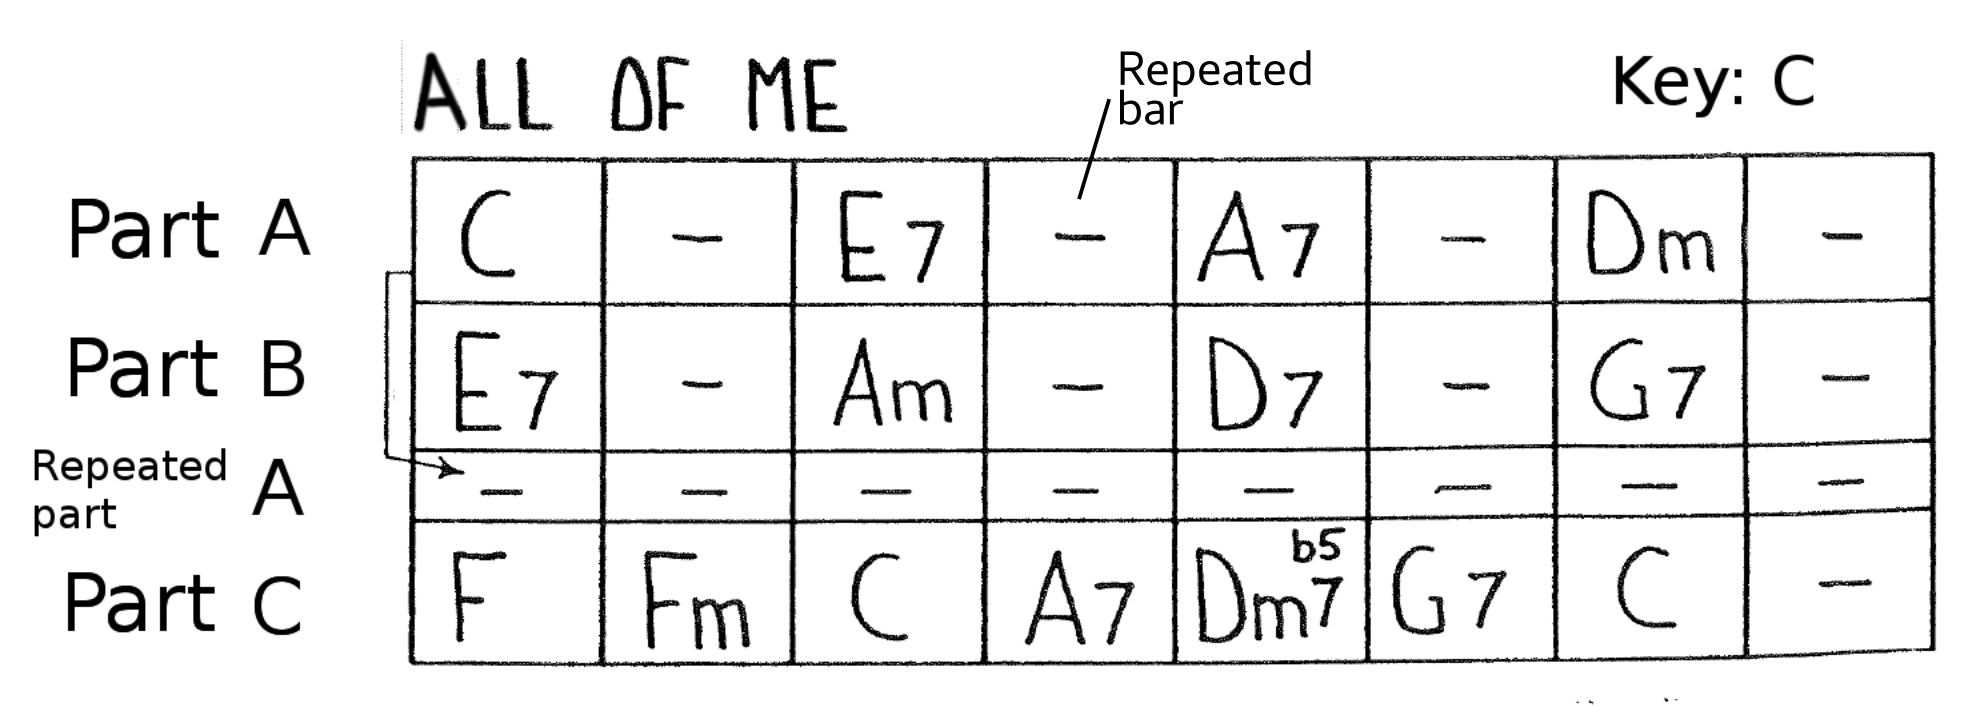 ALL OF ME
Repeated
bar
Key: C
Part A
C - E7 - A7 - Dm -
Part B
E7 - Am - D7 - G7 -
Repeated
part
A
- - - - - - - -
Part C
F Fm C A7 Dm7b5 G7 C -